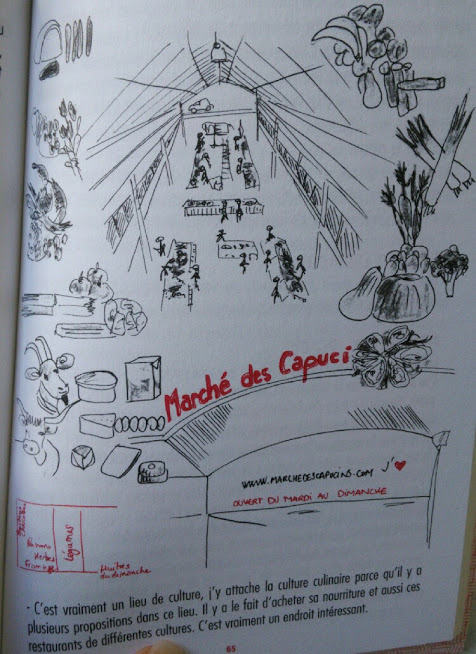 Marché des Capuci
WWW.MARCHEDESCAPUCINS.COM J'❤
OUVERT DU MARDI AU DIMANCHE
Légumes
Huîtres
du dimanche
- C'est vraiment un lieu de culture, j'y attache la culture culinaire parce qu'il y a
plusieurs propositions dans ce lieu. Il y a le fait d'acheter sa nourriture et aussi ces
restaurants de différentes cultures. C'est vraiment un endroit intéressant.
65